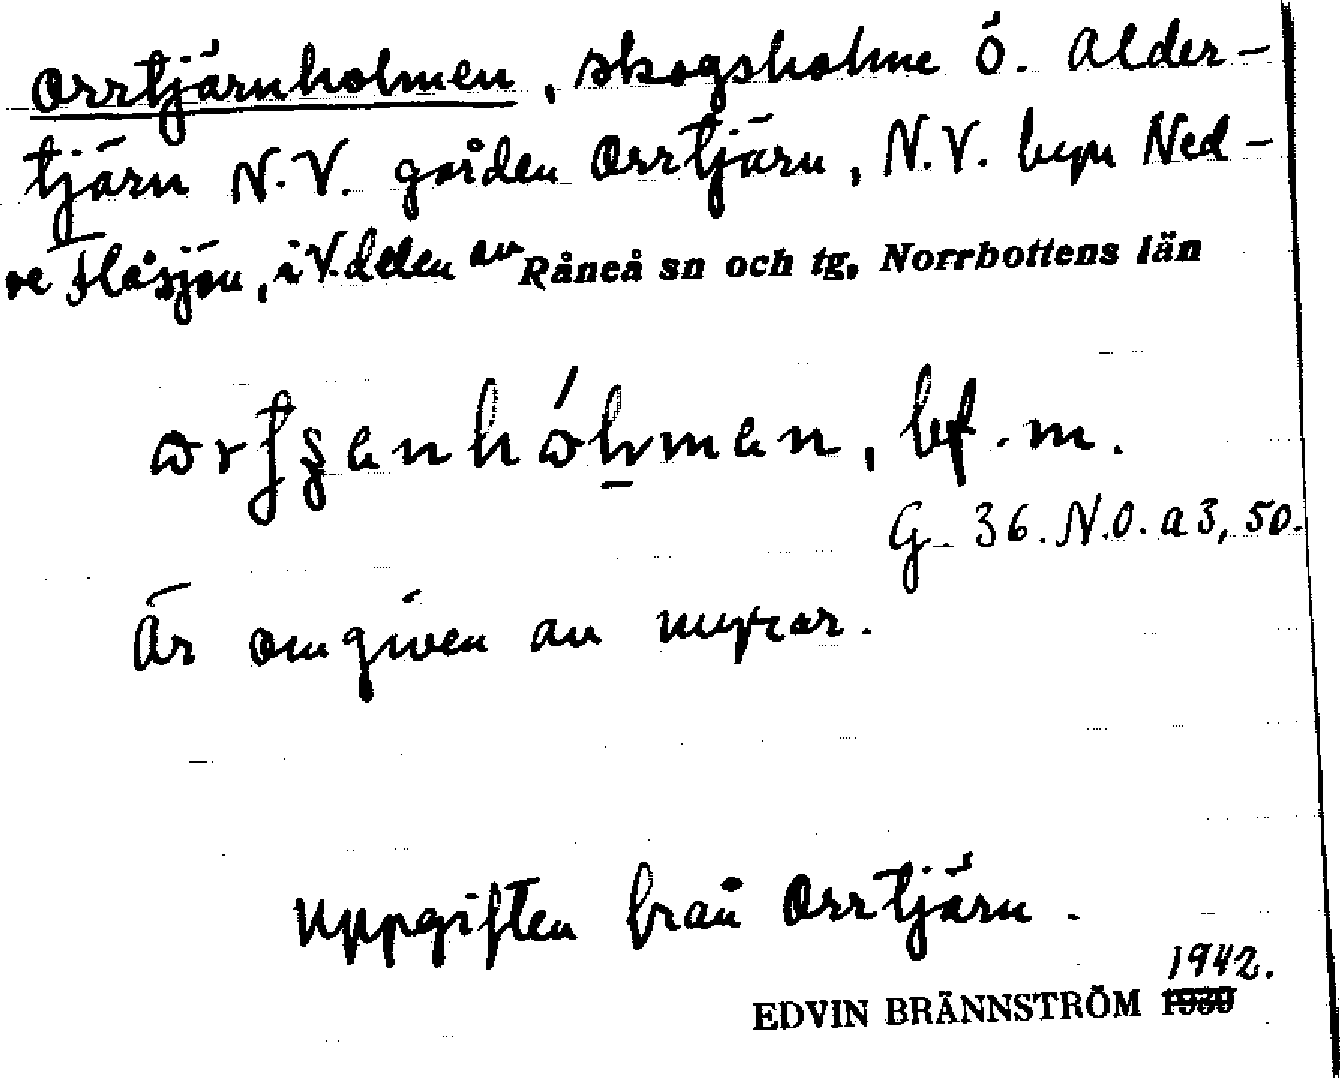 Orrtjärnholmen, skogsholme ö. Alder-
tjärn N.V. gården Orrtjärn, N.V. byn Ned-
re Flåsjön, i V. delen av Råneå sn och tg, Norrbottens län
bf. m.
G. 36. N.O. a 3, 50.
Är omgiven av myrar.
Uppgiften från Orrtjärn.
1942.
EDVIN BRÄNNSTRÖM 1930